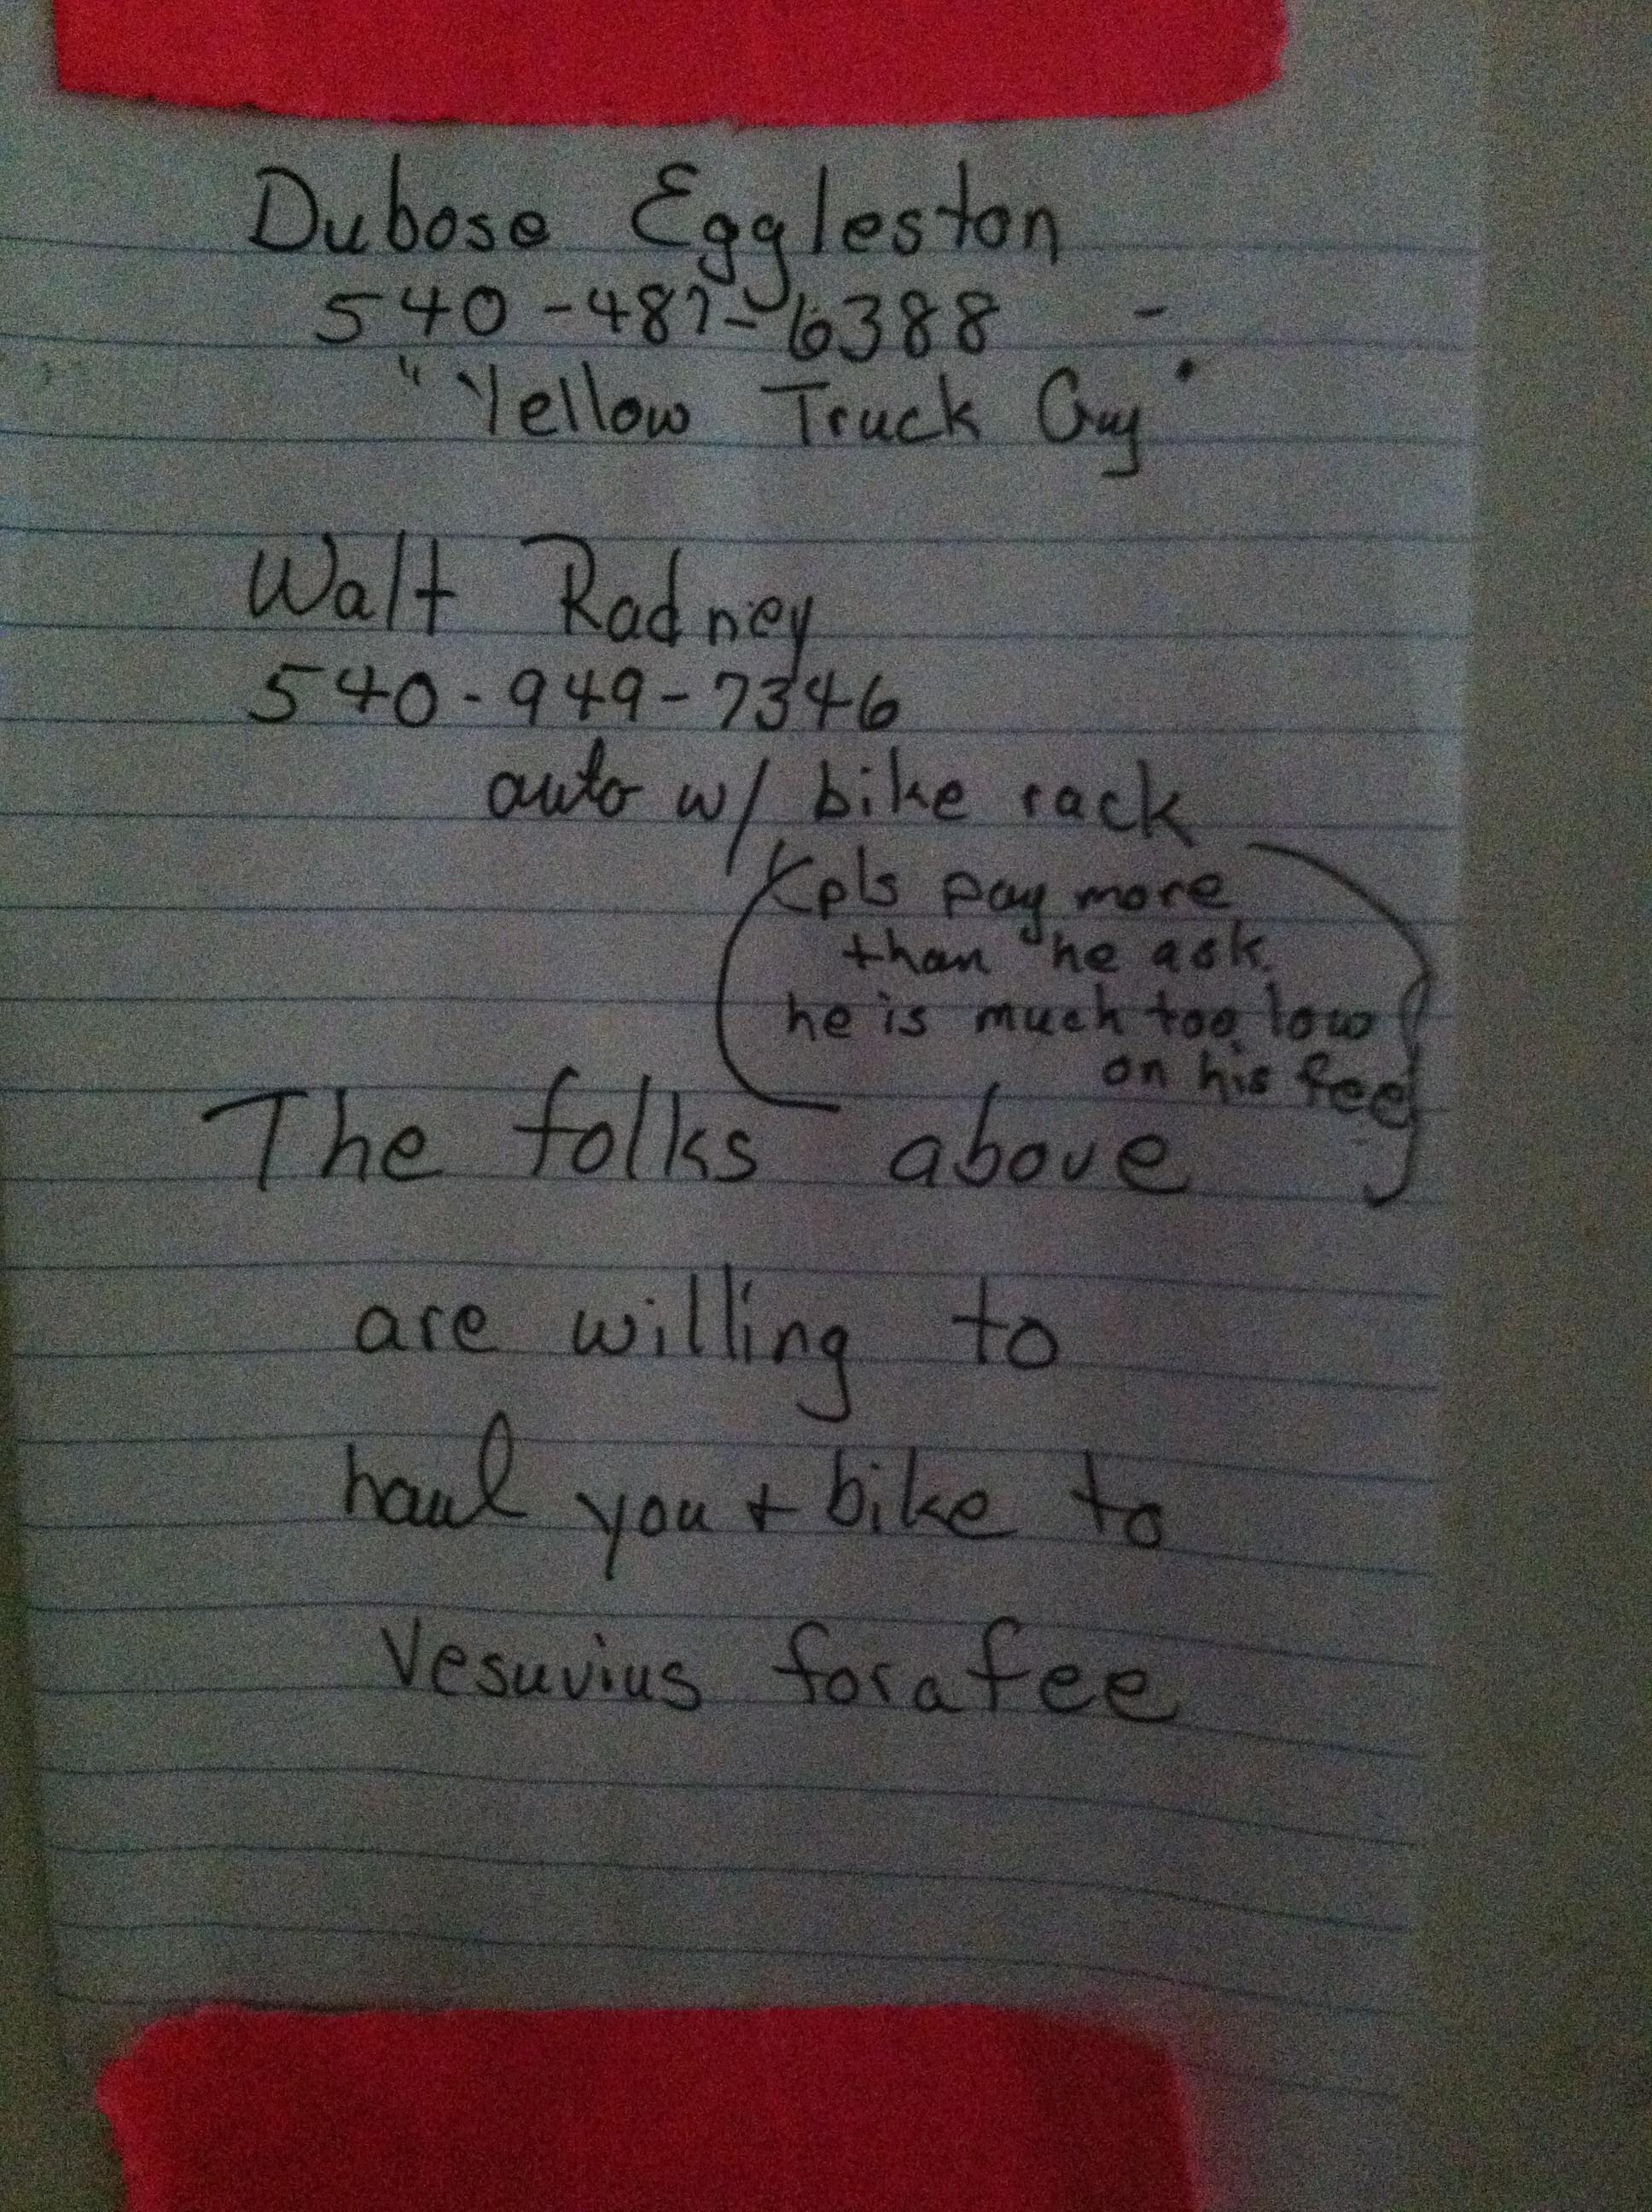 Dubose Eggleston
540-487-6388 -
"Yellow Truck Guy"
Walt Radney
540-949-7346
auto w/ bike rack
(pls pay more
than he ask.
he is much too low
on his fee)
The folks above
are willing to
haul you + bike to
Vesuvius for a fee